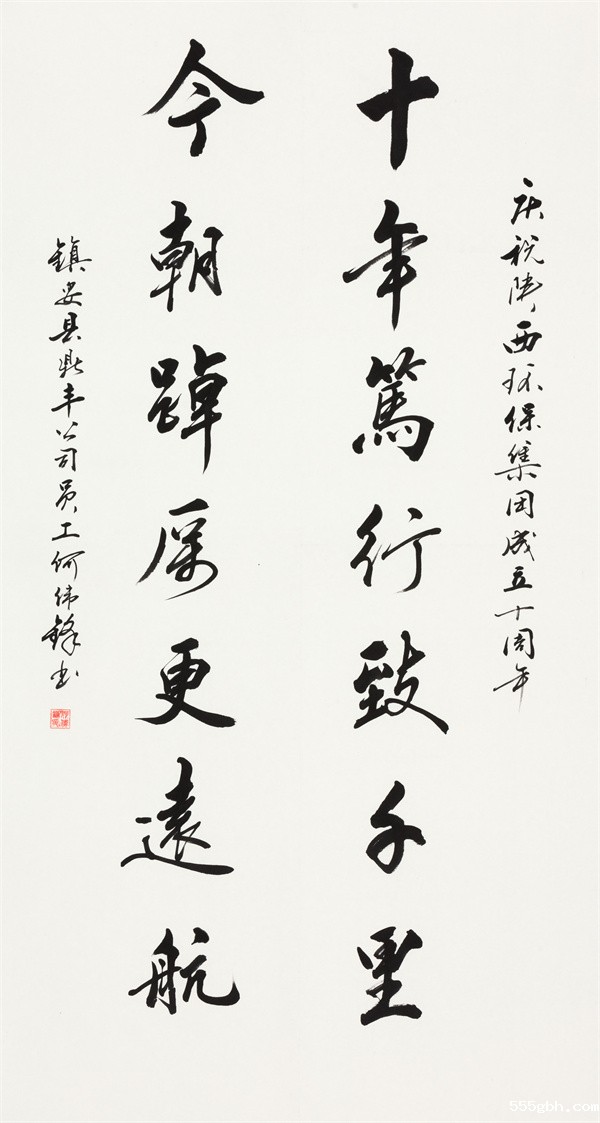 庆祝陕西环保集团成立十周年
十年篤行致千里
今朝踔厉更遠航
鎮安县鼎丰公司员工何伟鋒书
555gbh.com